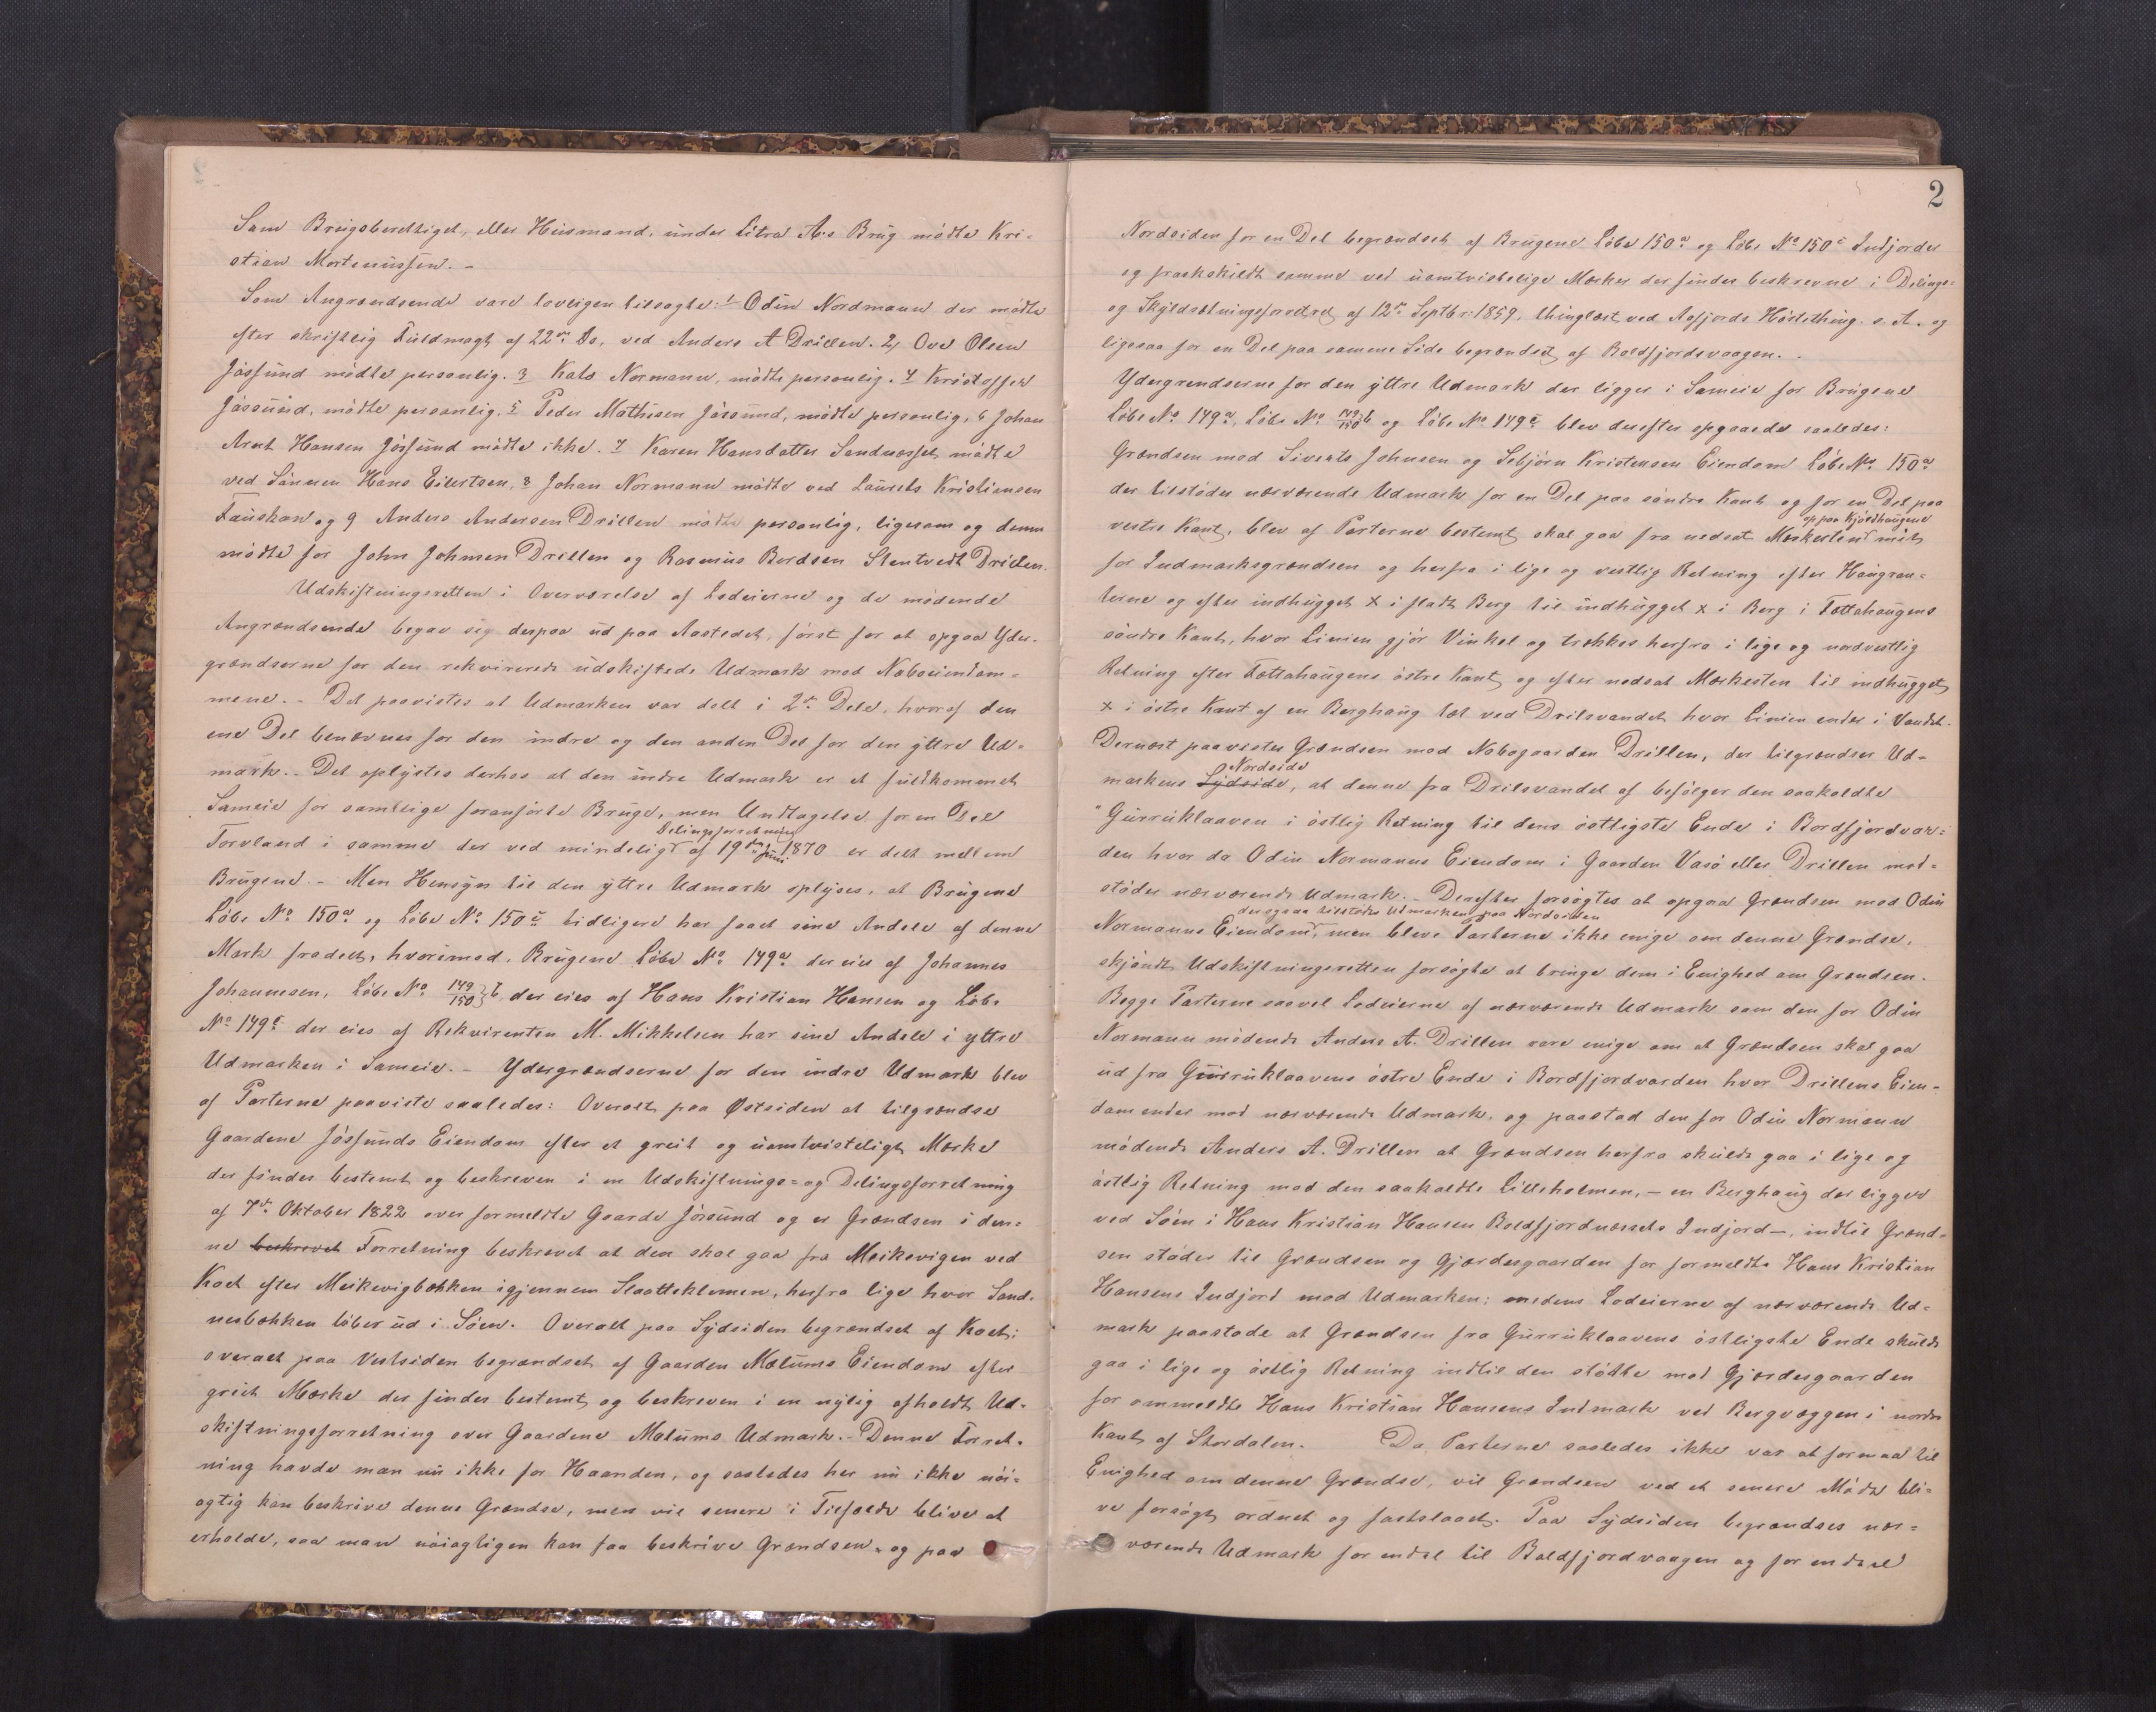 Som Brugsberettiget, eller Husmand, under Litra A's Brug mødte Kri-
stian Mortenussen. -
Som Angrændsende vare lovligen tilsagte: 1 Odin Nordmann der mødte
efter skriftlig Fuldmagt af 22de Ds. ved Anders A Drillen. 2, Ove Olsen
Jøssund mødte personlig. 3 Kats Normann, mødte personlig. 4 Kristoffer
Jøssund, mødte personlig. 5 Peder Mathisen Jøssund, mødte personlig, 6 Johan
Arnt Hansen Jøssund mødte ikke. 7 Karen Hansdatter Sandnæsset mødte
ved Sønnen Hans Eilertsen. 8 Johan Normann mødte ved Laurits Kristiansen
Fauskan og 9 Anders Andersen Drillen mødte personlig, ligesom og denne
mødte for John Johnsen Drillen og Rasmus Bordsen Stentvedt Drillen.
Udskiftningsretten i Overværelse af Lodeierne og de mødende
Angrændsende begav sig derpaa ud paa Aastedet, først for at opgaa Yder-
grændserne for den rekvirerede udskiftede Udmark mod Naboeiendom-
mene. - Det paavistes at Udmarken var delt i 2de Dele, hvoraf den
ene Del benævnes for den indre og den anden Del for den yttre Ud-
mark. - Det oplystes derhos at den indre Udmark er et fuldkomment
Sameie for samtlige foranførte Bruge, men Undtagelse for en Del
Delingsforretning
Torvland i samme der ved mindelig af 19de Juni 1870 er delt mellem
Brugene. - Men Hensyn til den yttre Udmark oplyses, at Brugene
Løbe No 150a og Løbe No 150c tidligere har faaet sine Andele af denne
Mark fradelt, hvorimod, Brugene Løbe No 149a der eies af Johannes
Johannesen, Løbe No 149/150 b, der eies af Hans Kristian Hansen og Løbe
No 149c der eies af Rekvirenten M. Mikkelsen har sine Andele i yttre
Udmarken i Sameie. - Ydergrændserne for den indre Udmark blev
af Parterne paaviste saaledes: Overalt paa Østsiden at tilgrændse
Gaardene Jøssunds Eiendom efter et greit og uomtvisteligt Mærke
der findes bestemt og beskreven i en Udskiftnings- og Delingsforretning
af 7de Oktober 1822 over formeldte Gaarde Jøssund og er Grændsen i den-
ne beskrevet Forretning beskrevet at den skal gaa fra Meikevigen ved
Koet efter Meikevigbækken igjennem Slaatteklomen, herfra lige hvor Sand-
nesbækken løber ud i Søen. Overalt paa Sydsiden begrændset af Koet;
overalt paa Vestsiden begrændset af Gaarden Mælums Eiendom efter
greit Mærke der findes bestemt og beskreven i en nylig afholdt Ud-
skiftningsforretning over Gaardene Mælums Udmark. - Denne Forret-
ning havde man nu ikke for Haanden, og saaledes her nu ikke nøi-
agtig kan beskrive denne Grændse, men vil senere i Tilfælde blive at
erholde, saa man nøiagtigen kan faa beskrive Grændsen, og paa
2
Nordsiden for en Del begrændset af Brugene Løbe 150a og Løbe No 150c Indjorder
og fraskskildt samme ved uomtvistelige Mærker der findes beskrevne i Delings-
og Skyldsætningsforretng af 12te Septbr: 1859, thinglæst ved Aafjords Høstething s. A. og
ligesaa for en Del paa samme Side begrændset af Boldfjordsvaagen. .
Ydergrendserne for den yttre Udmark der ligger i Sameie for Brugene
Løbe No 149a, Løbe No 149/150 b og Løbe No 149c blev derefter opgaaede saaledes:
Grændsen mod Siverts Johnsen og Sebjørn Kristensen Eiendom Løbe No 150a
der tilstøder nærværende Udmark for en Del paa søndre Kant og for en Del paa
oppaa Kjøldhaugene
vestre Kant, blev af Parterne bestemt skal gaa fra nedsat Merkesten mit
for Indmarksgrændsen og herfra i lige og vestlig Retning efter Haugran-
terne og efter indhugget x i fladt Berg til indhugget x i Berg i Tottahaugens
søndre Kant, hvor Linien gjør Vinkel og trækkes herfra i lige og nordvestlig
Retning efter Tottahaugens østre Kant og efter nedsat Mærkesten til indhugget
x i østre Kant af en Berghaug tæt ved Drilsvandet hvor Linien ender i Vandet.
Dernæst paavistes Grændsen mod Nabogaarden Drillen, der tilgrændser Ud-
Nordside
markens Sydside, at denne fra Drilsvandet af befølger den saakaldte
Gurruklaaven i østlig Retning til dens østligste Ende i Bordfjordvar-
den hvor da Odin Normanns Eiendom i Gaarden Vasø eller Drillen mod-
støder nærværende Udmark. - Derefter forsøgtes at opgaa Grændsen mod Odin
der ogsaa tilstøder Udmarken paa Nordsiden
Normanns Eiendom, men bleve Parterne ikke enige om denne Grændse,
skjøndt Udskiftningsretten forsøgte at bringe dem i Enighed om Grændsen.
Begge Parterne saavel Lodeierne af nærværende Udmark som den for Odin
Normann mødende Anders A. Drillen vare enige om at Grændsen skal gaa
ud fra Gurruklaavens østre Ende i Bordfjordvarden hvor Drillens Eien-
dom ender mod nærværende Udmark, og paastod den for Odin Normann
mødende Anders A. Drillen at Grændsen herfra skulde gaa i lige og
østlig Retning mod den saakaldte Lilleholmen, - en Berghaug der ligger
ved Søen i Hans Kristian Hansen Boldfjordnæssets Indjord -, indtil Grænd-
sen støder til Grændsen og Gjærdesgaarden for formeldte Hans Kristian
Hansens Indjord mod Udmarken; medens Lodeierne af nærværende Ud-
mark paastode at Grændsen fra Gurruklaavens østligste Ende skulde
gaa i lige og østlig Retning indtil den støtte mod Gjærdesgaarden
for ommeldte Hans Kristian Hansens Indmark ved Bergvæggen i nordre
Kant af Stordalen. Da Parterne saaledes ikke var at formaa til
Enighed om denne Grændse, vil Grændsen ved et senere Møde bli-
ve forsøgt ordnet og fastslaaet. Paa Sydsiden begrændses nær-
værende Udmark for endel til Boldfjordvaagen og for endeel